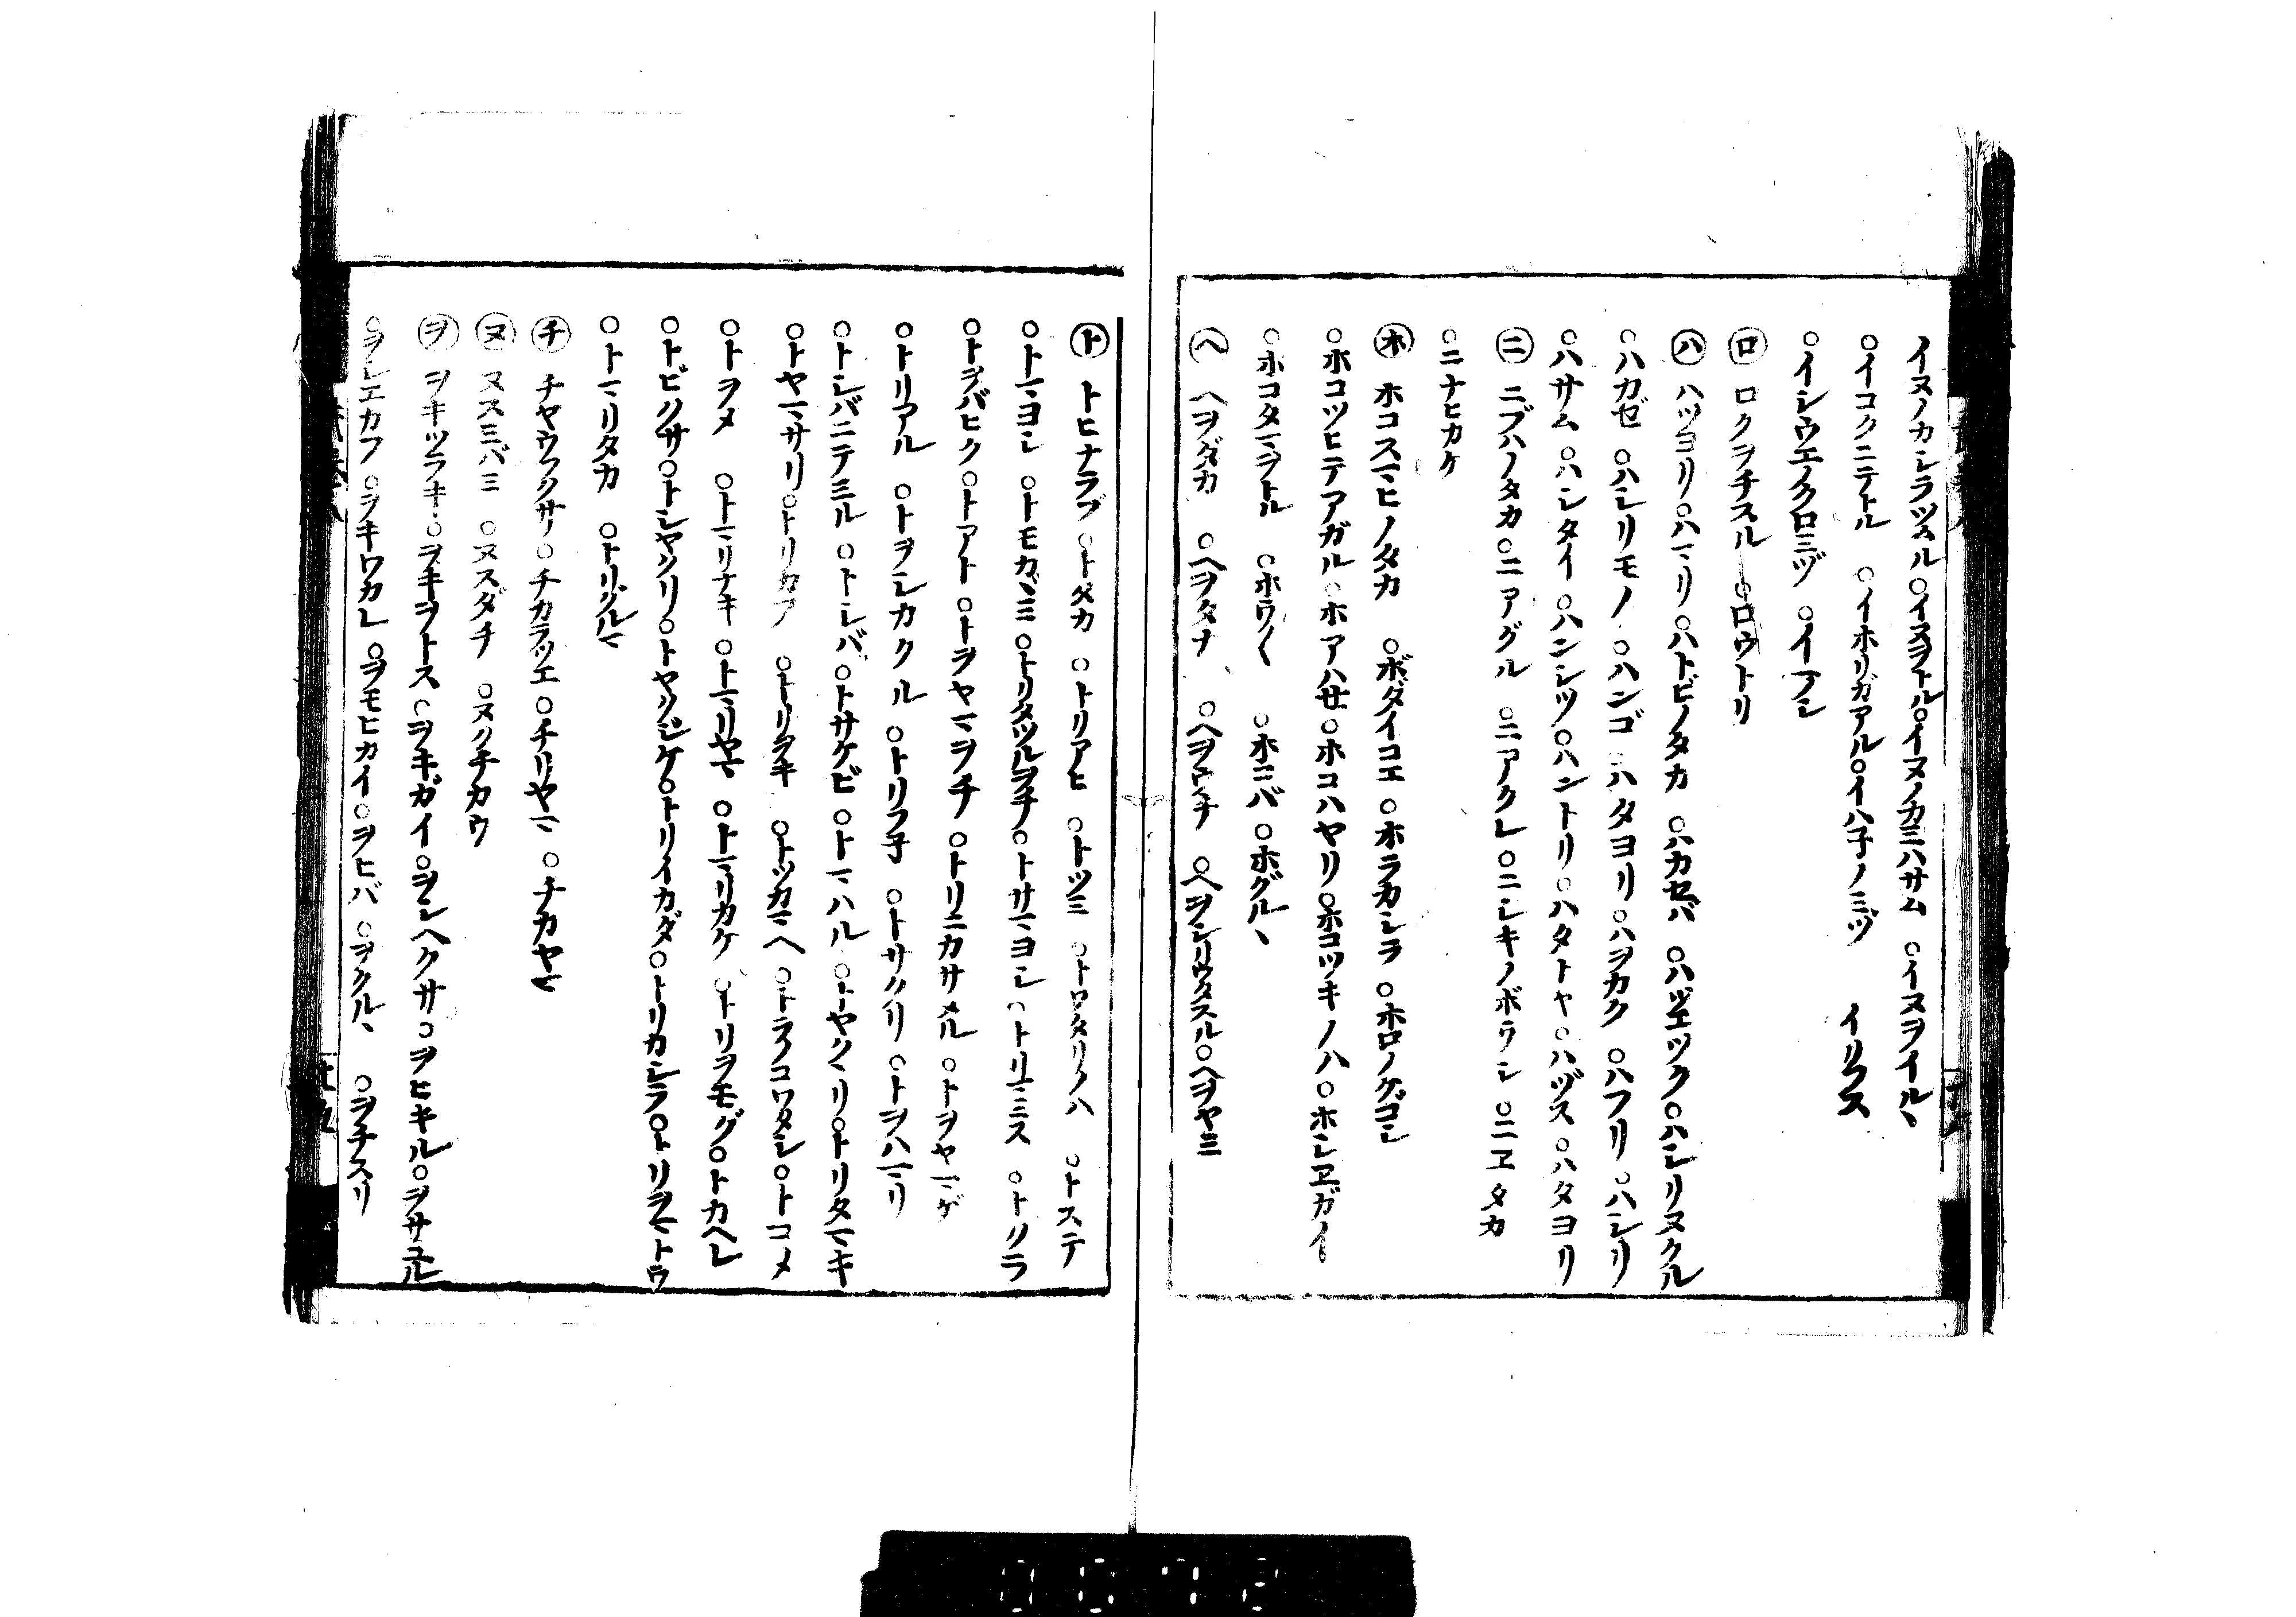 イヌノカシラツヽル○イヌヲトル○イヌノカミハサム　○イヌヲイルヽ
○イコクニテトル　○イホリガアル○イハ子ノミヅ　イリクス
○イシウエノクロミヅ　○イマシ
㋺　ロクヲチスル　○ロウトリ
㋩　ハツヨリ○ハマリ○ハトビノタカ　○ハカセバ　○ハヅエツク○ハシリヌクル
○ハカゼ　○ハシリモノ　○ハンゴ　○ハタヨリ　○ハヲカク　○ハフリ　○ハシリ
○ハサム　○ハシタイ　○ハンシツ○ハントリ　○ハタトヤ○ハヅス　○ハタヨリ
㋥　ニブハノタカ○ニアグル　○ニアクレ○ニシキノボウシ　○ニヱタカ
○ニナヒカケ
㋭　ホコスマヒノタカ　○ボダイコエ　○ホラカシラ　○ホロノケゴシ
○ホコツヒテアガル○ホアハせ○ホコハヤリ○ホコツキノハ○ホシヱガイ
○ホコタマヲトル　○ホウ〱　○ホニバ　○ホグルヽ
㋬　ヘヲダカ　○ヘヲタナ　○ヘヲウチ　○ヘヲシリウタスル○ヘヲヤミ
㋣　トヒナラブ　○トダカ　○トリアヒ　○トツミ　○トロタリノハ　○トステ
○トマヨシ　○トモカヾミ　○トリタツルヲチ○トサマヨシ　○トリマミス　○トクラ
○トヲバヒク○トアト　○トヲヤマヲチ　○トリニカサメル　○トヲヤマゲ
○トリアル　○トヲシカクル　○トリフ子　○トサクリ　○トヲハマリ
○トシバニテミル　○トシバ　○トサケビ　○トマハル　○トヤクヽリ○トリタマキ
○トヤマサリ　○トリカフ　○トリラキ　○トツカマヘ　○トラクコワタシ○トコメ
○トヲメ　○トマリナキ　○トマリヤマ　○トマリカケ　○トリヲモグ○トカヘレ
○トビクサ○トシヤクリ○トヤクジケ○トリイカダ○トリカシラ○トリヲマトウ
○トマリタカ　○トリグルマ
㋠　チヤウフクサ○チカラツエ○チリヤマ　○チカヤマ
㋦　ヌスミバミ　○ヌスダチ　○ヌクチカウ
㋾　ヲキツラキ○ヲキヲトス　○ヲキガイ○ヲシヘクサ○ヲヒキル○ヲサユル
○ヲシエカフ　○ヲキワカレ　○ヲモヒカイ○ヲヒバ　○ヲクルヽ　○ヲチスリ